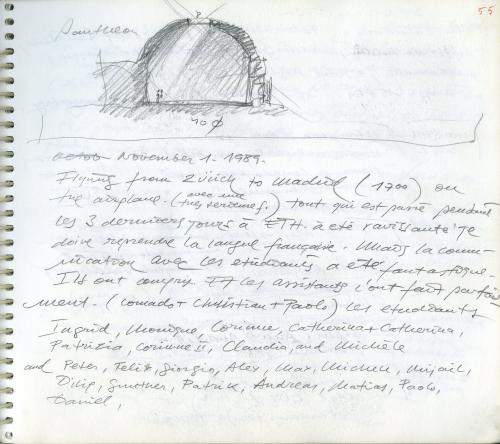 55
Pantheon
40 φ
November 1. 1989.
Flying from Zürich to Madrid (1700) on
the airplane. (avec une très) tout qui est passé pendant
les 3 derniers jours à ETH. à été ravissante je
dois reprendre la langue française. Mais la commu-
nication avec les etudiants a été fantastique.
Ils ont compris et les assistants l'ont fait parfaite-
ment. (Conrado + Christian + Paolo) les etudiants
Ingrid, Monique, Corinne, Catherina + Catherina,
Patrizia, Corinne II, Claudia, and Michèle
and Peter, Felix, Giorgio, Alex, Max, Michele,
Dilip, Patrik, Andreas, Matias, Paolo,
Daniel,